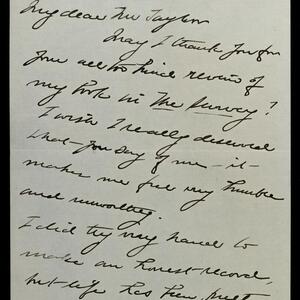 My dear Mr Taylor
May I thank you for
your all too kind review of
my book in The Survey?
I wish I really deserved
what you say of me - it
makes me feel very humble
and unworthy.
I did try very hard to
make an honest record,
but life has been just